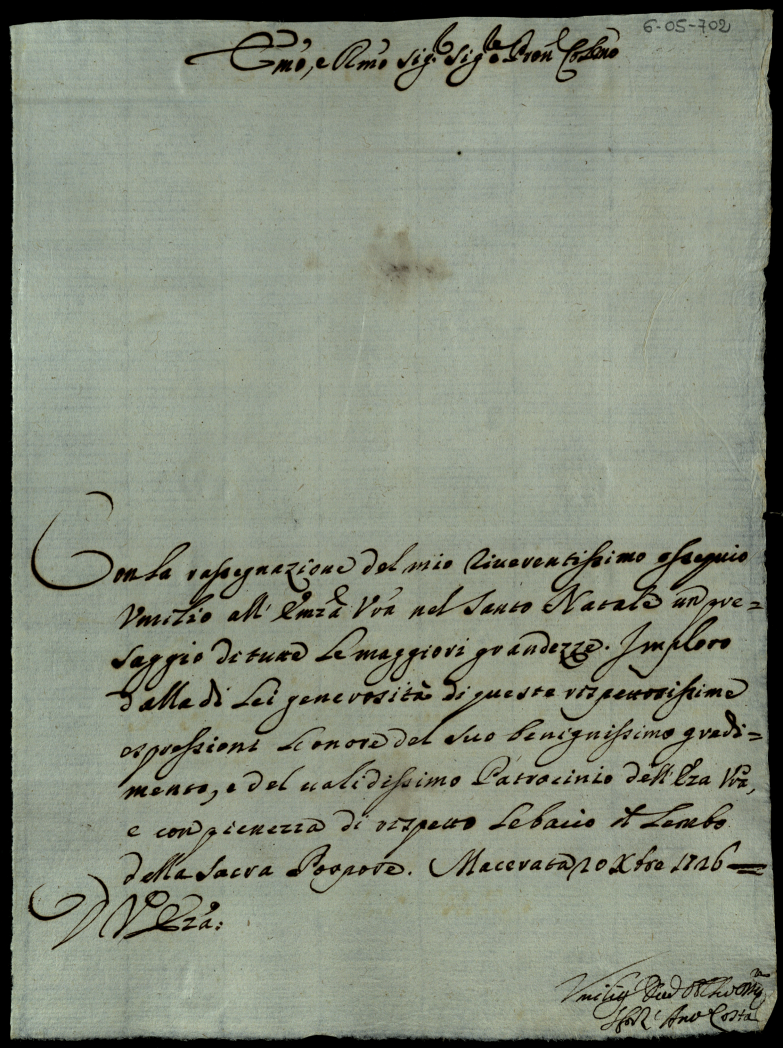 6-05-702
Emo, e Rmo Sigr. Sigre Pron Colmo
Con la rassegnazione del mio riverentissimo ossequio
Umilio all' Emza Vra nel Santo Natale un pre=
saggio di tutte le maggiori grandezze. Imploro
dalla di Lei generosità di queste rispettosissime
espressioni l'onore del suo benignissimo gradi=
mento, e del validissimo Patrocinio dell'Eza Vra,
e con pienezza di rispetto le bacio il Lembo
della Sacra Porpora. Macerata 20 Xbre 1726
D V Eza:
Costa